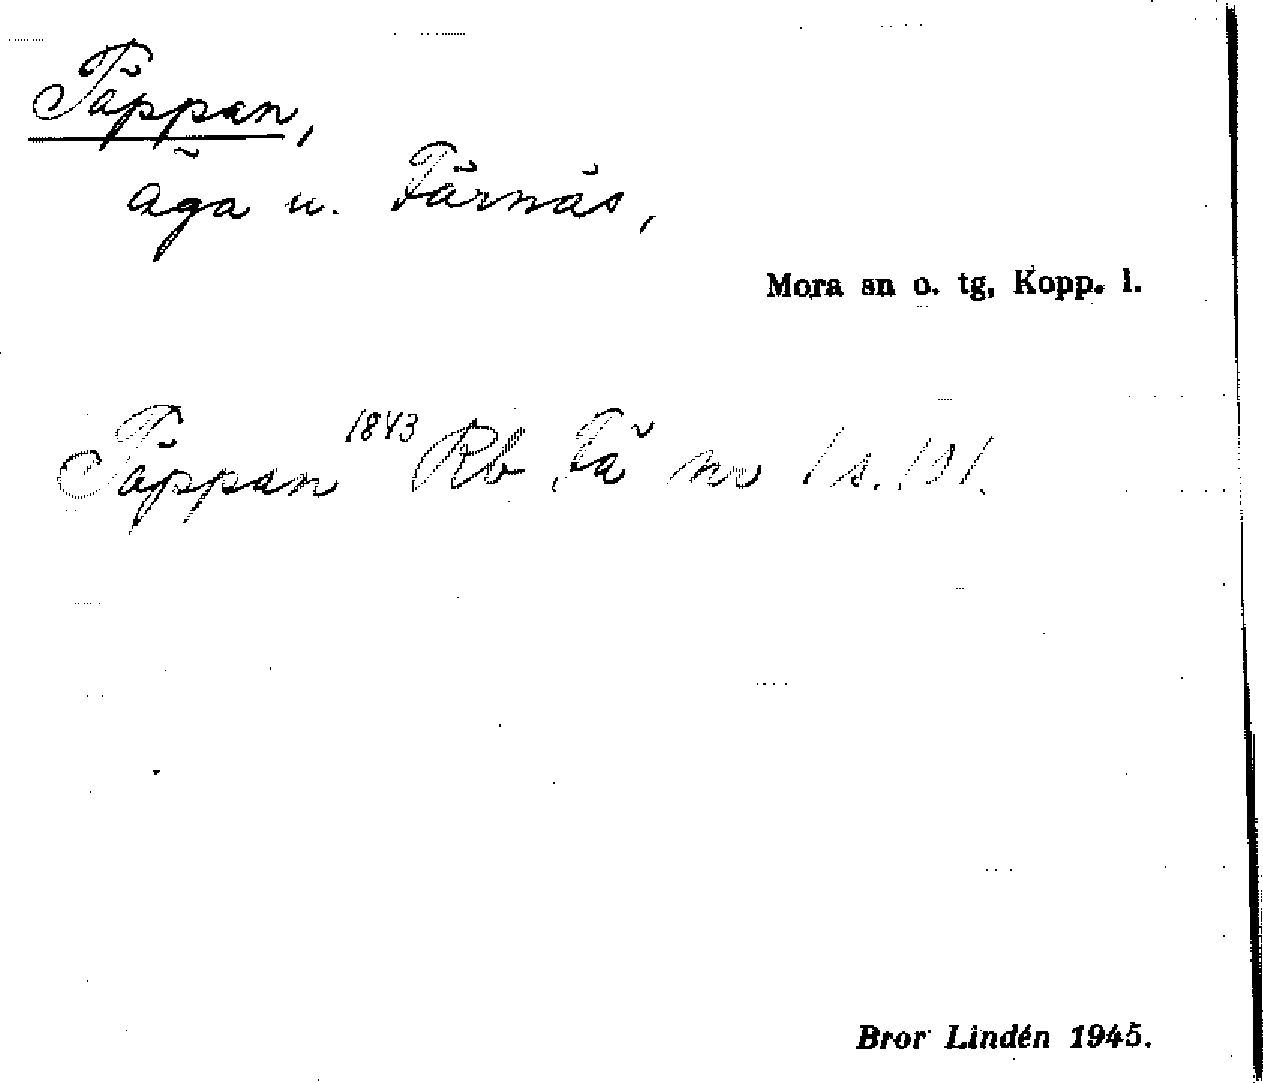 Täppan,
äga u. Färnäs,
Mora sn o. tg, Kopp. l.
Täppan 1843 Rb Fä nr 1 s. 191.
Bror Lindén 1945.